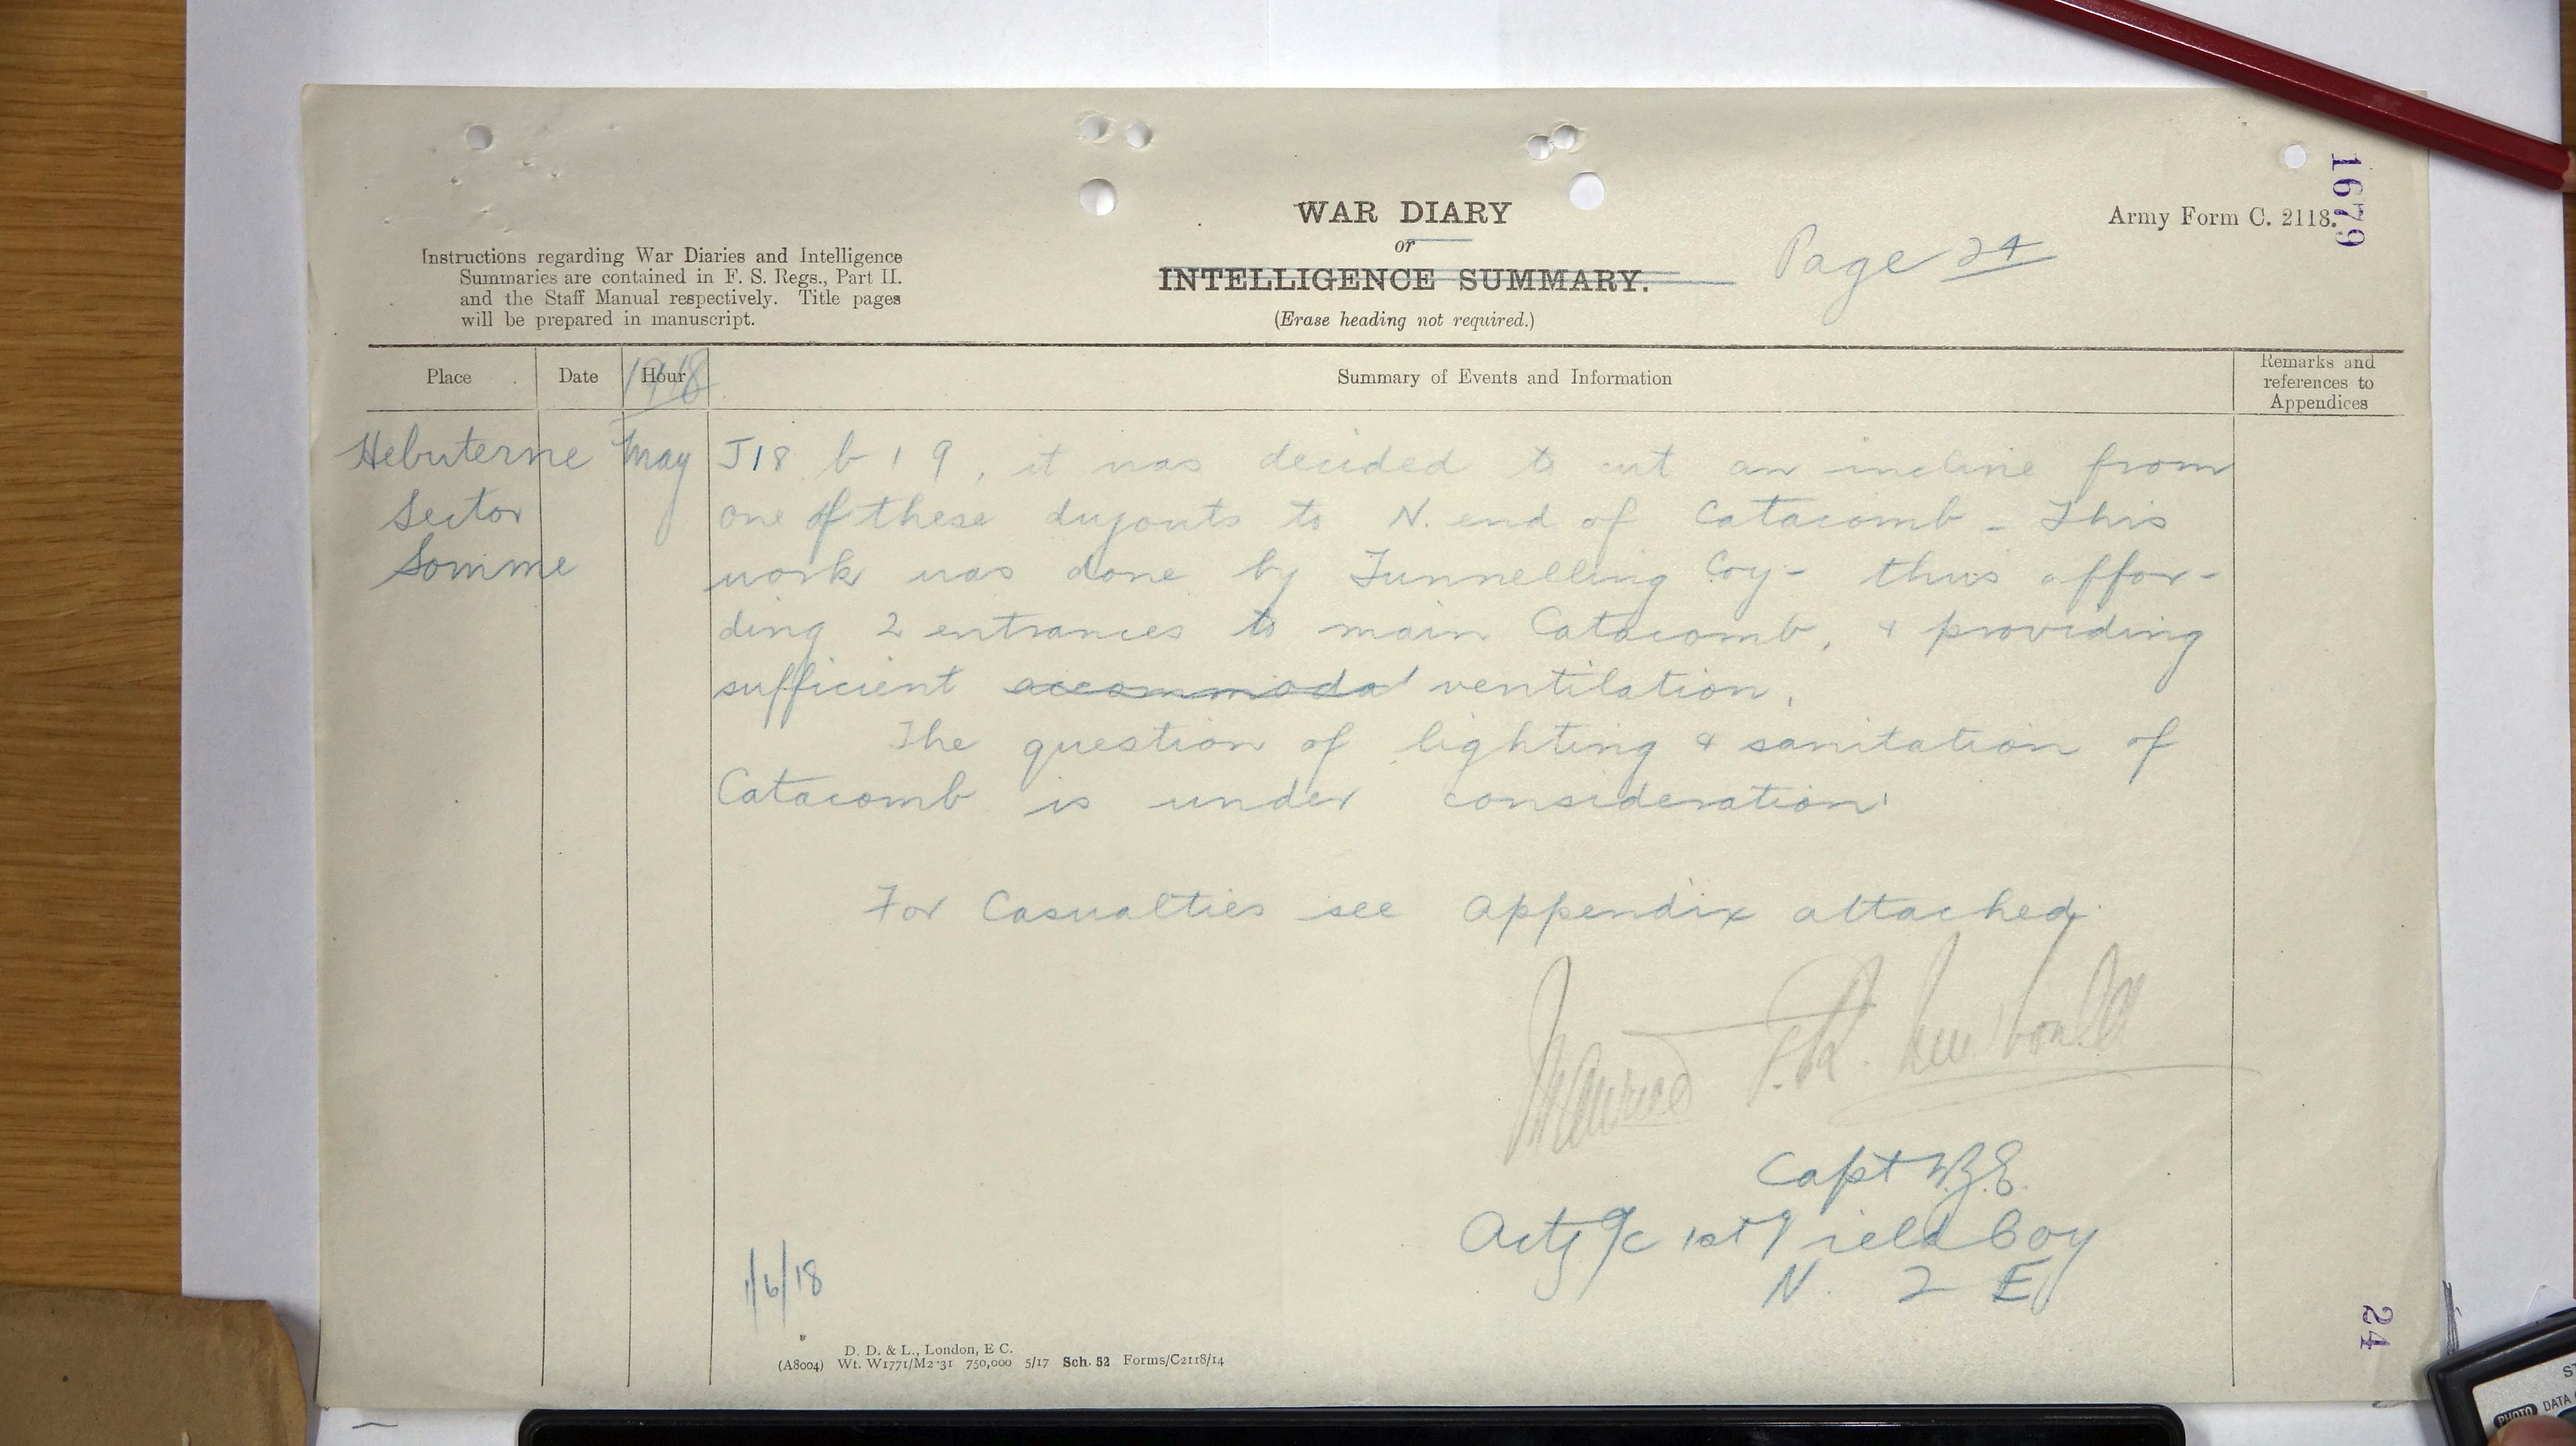 WAR DIARY
or
INTELLIGENCE SUMMARY.
(Erase heading not required.)
Instructions regarding War Diaries and Intelligence
Summaries are contained in F. S. Regs., Part II.
and the Staff Manual respectively. Title pages
will be prepared in manuscript.
Page 24
Army Form C. 2118.
1679
Place
Date
Hour
1918
Summary of Events and Information
Remarks and
references to
Appendices
Hebuterne
Sector
Somme
May
J18 b 1 9, it was decided to cut an incline from
one of these dugouts to N. end of Catacomb - This
work was done by Tunnelling Coy - thus affor-
ding 2 entrances to main Catacomb, & providing
sufficient accommoda' ventilation.
The question of lighting & sanitation of
Catacomb is under consideration.
For Casualties see Appendix attached.
Capt N.Z.E.
Actg O/C 1st Field Coy
N. Z E
1/6/18
D. D. & L., London, E C.
(A8004) Wt. W1771/M2 31 750,000 5/17 Sch. 52 Forms/C2118/14
24
PHOTO
DATA